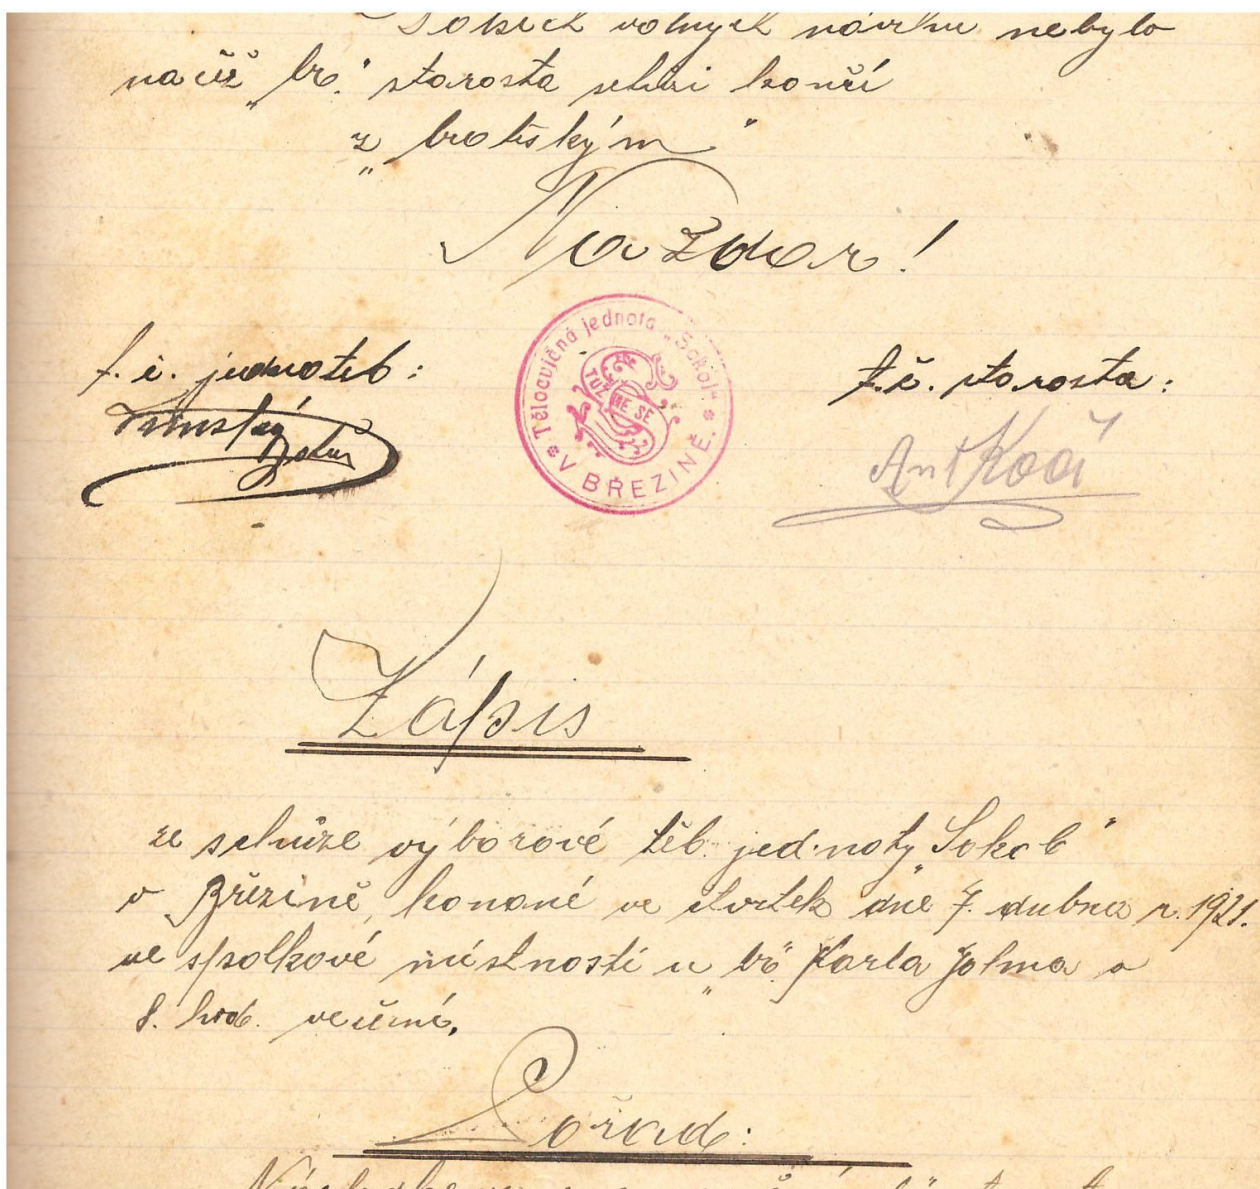 volných návrhu nebylo
načež „br.“ starosta schůzi končí
z „bratským“
Na zdar!
t. č. jednatel:
t. č. starosta:
Tělocvičná jednota „Sokol“
V BŘEZINĚ.
TUŽME SE
Ant Kočí
Zápis
ze schůze výborové těl. jednoty „Sokol“
v Březině, konané ve čtvrtek dne 7. dubna r. 1921.
ve spolkové místnosti u „br.“ Karla Johna o
8. hod. večerně.
Pořad: